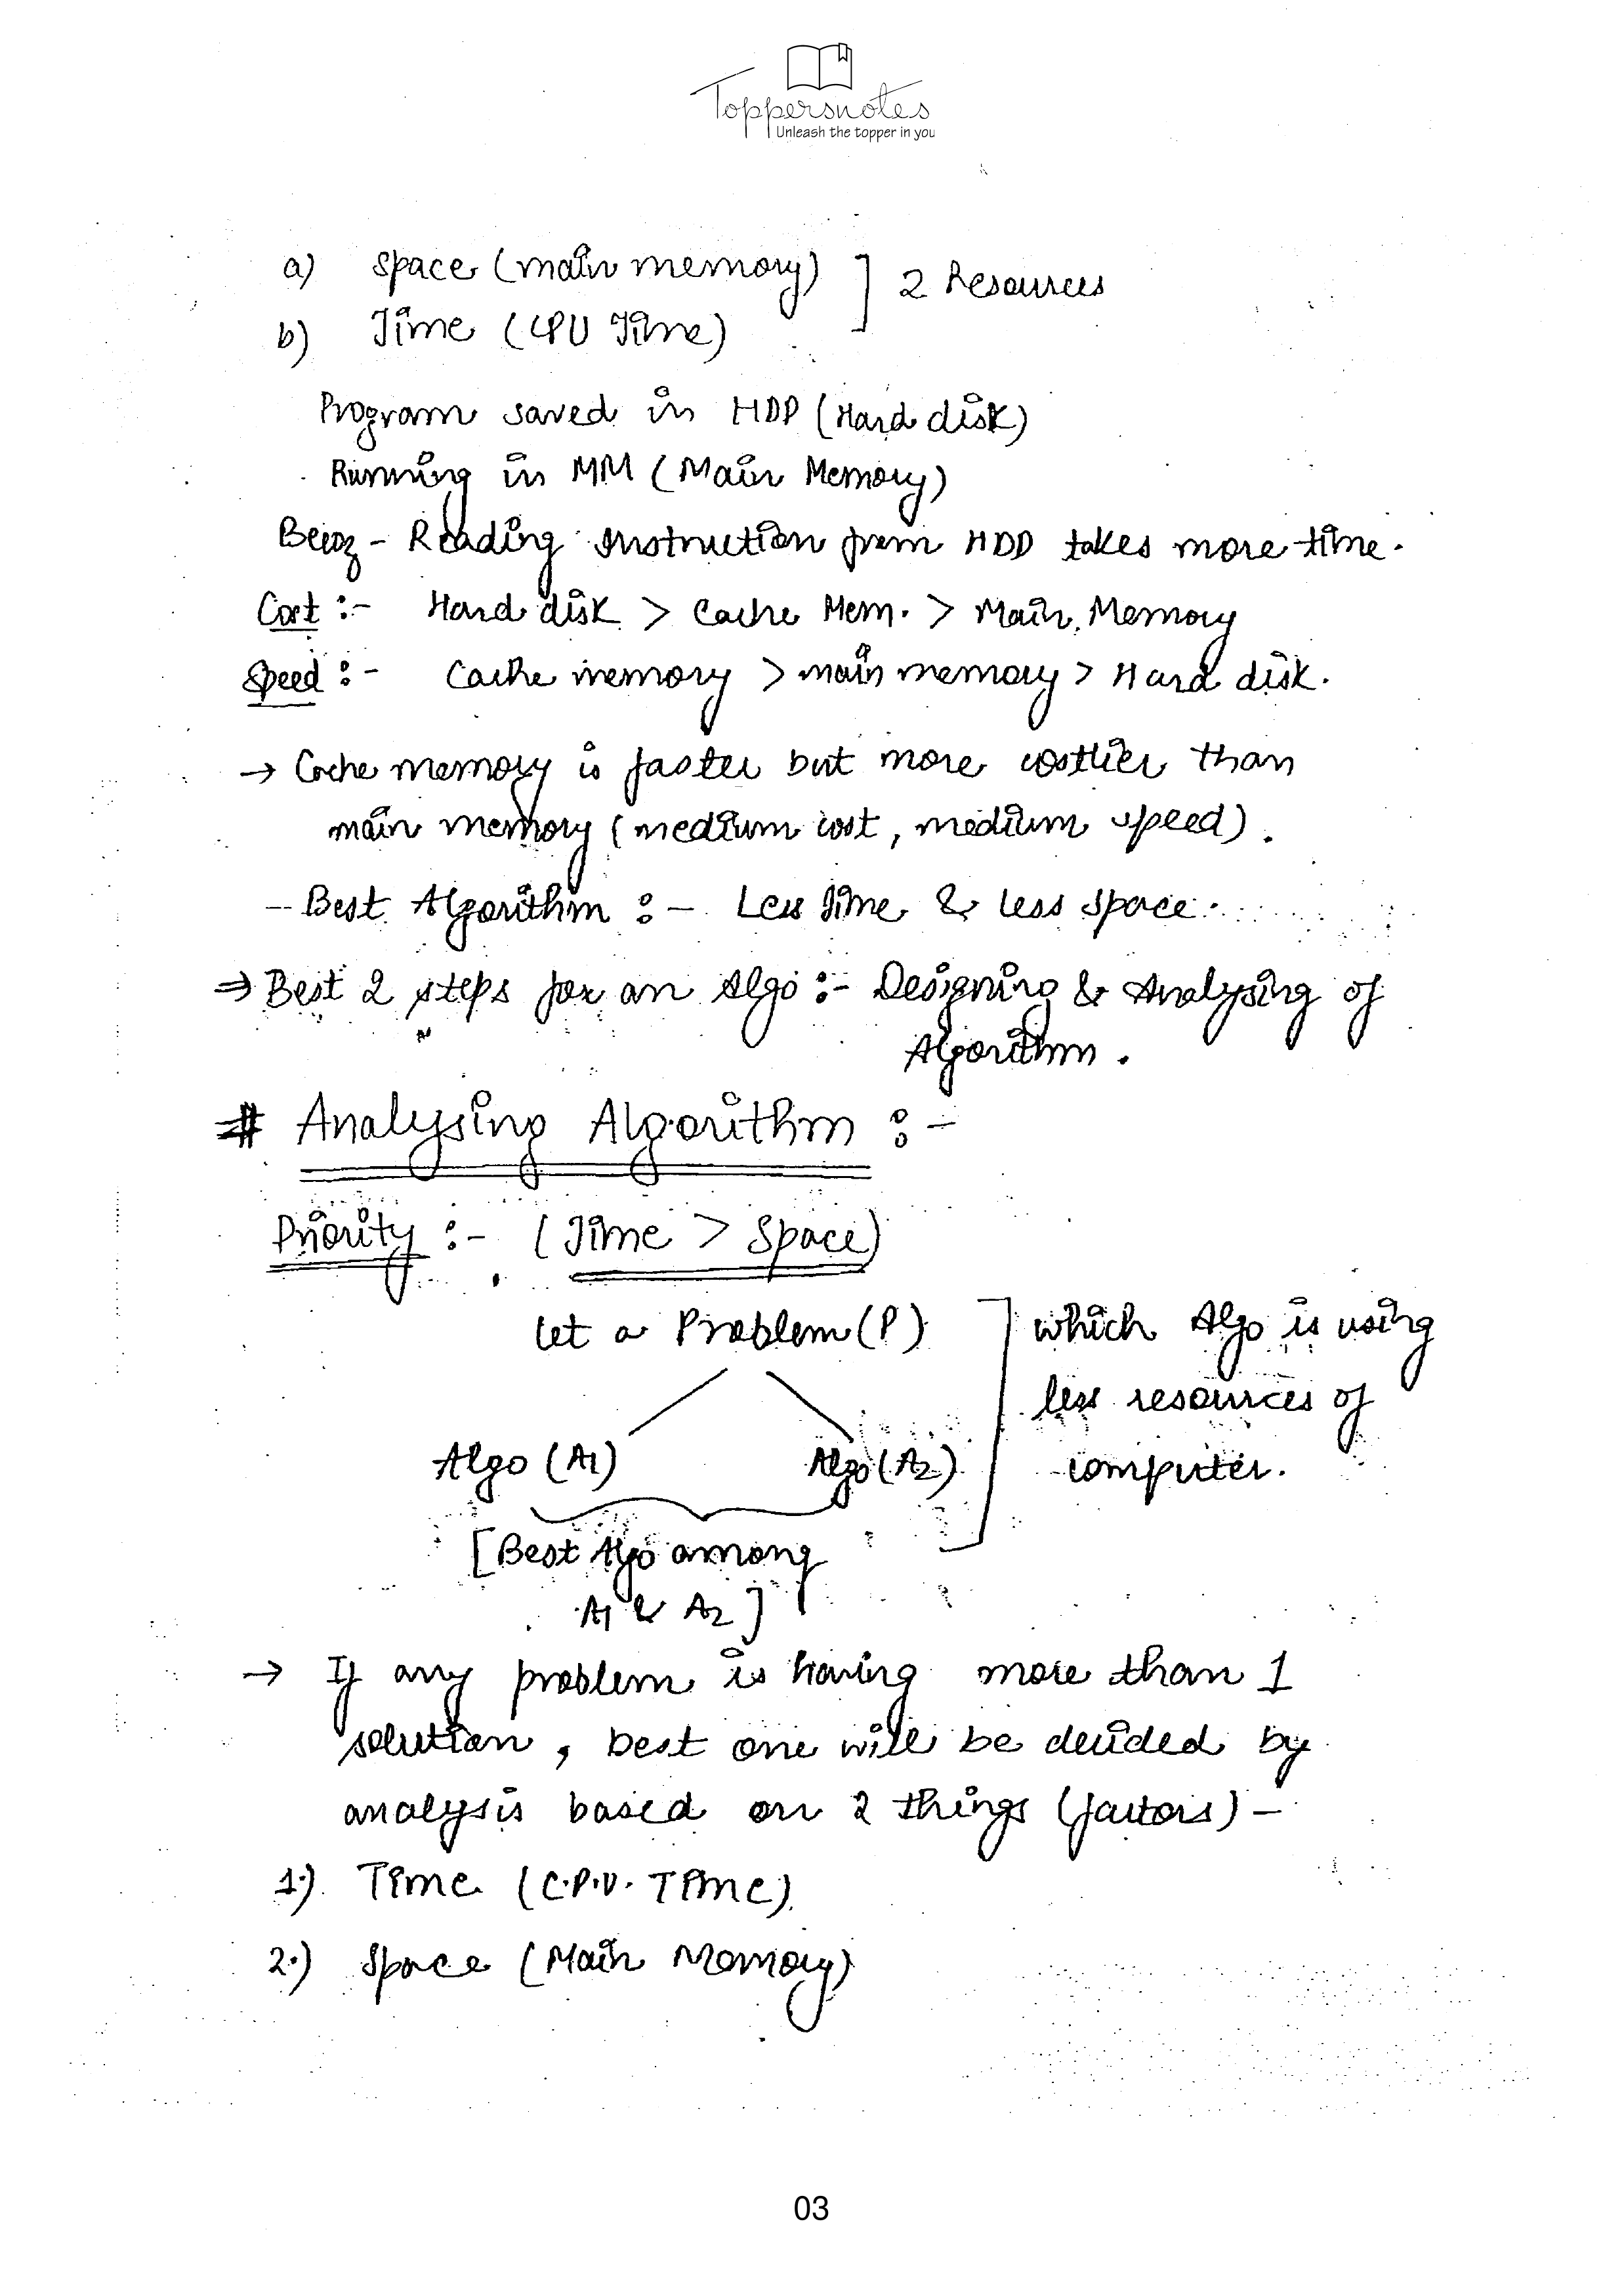 Toppersnotes
Unleash the topper in you
a) Space (main memory) ] 2 Resources
b) Time (CPU Time)
Program saved in HDD (Hard disk)
Running in MM (Main Memory)
Becoz - Reading Instruction from HDD takes more time.
Cost :- Hard disk > Cache Mem. > Main Memory
Speed :- Cache memory > main memory > Hard disk.
→ Cache memory is faster but more costlier than
main memory (medium cost, medium speed).
- Best Algorithm :- Less time & less space.
⇒ Best 2 steps for an Algo :- Designing & Analysing of
Algorithm.
# Analysing Algorithm :-
Priority :- (Time > Space)
let a Problem (P) ] which Algo is using
less resources of
Algo (A1) Algo (A2) computer.
[Best Algo among
A1 & A2]
→ If any problem is having more than 1
solution, best one will be decided by
analysis based on 2 things (factors) -
1.) Time (C.P.U. Time)
2.) Space (Main Memory)
03